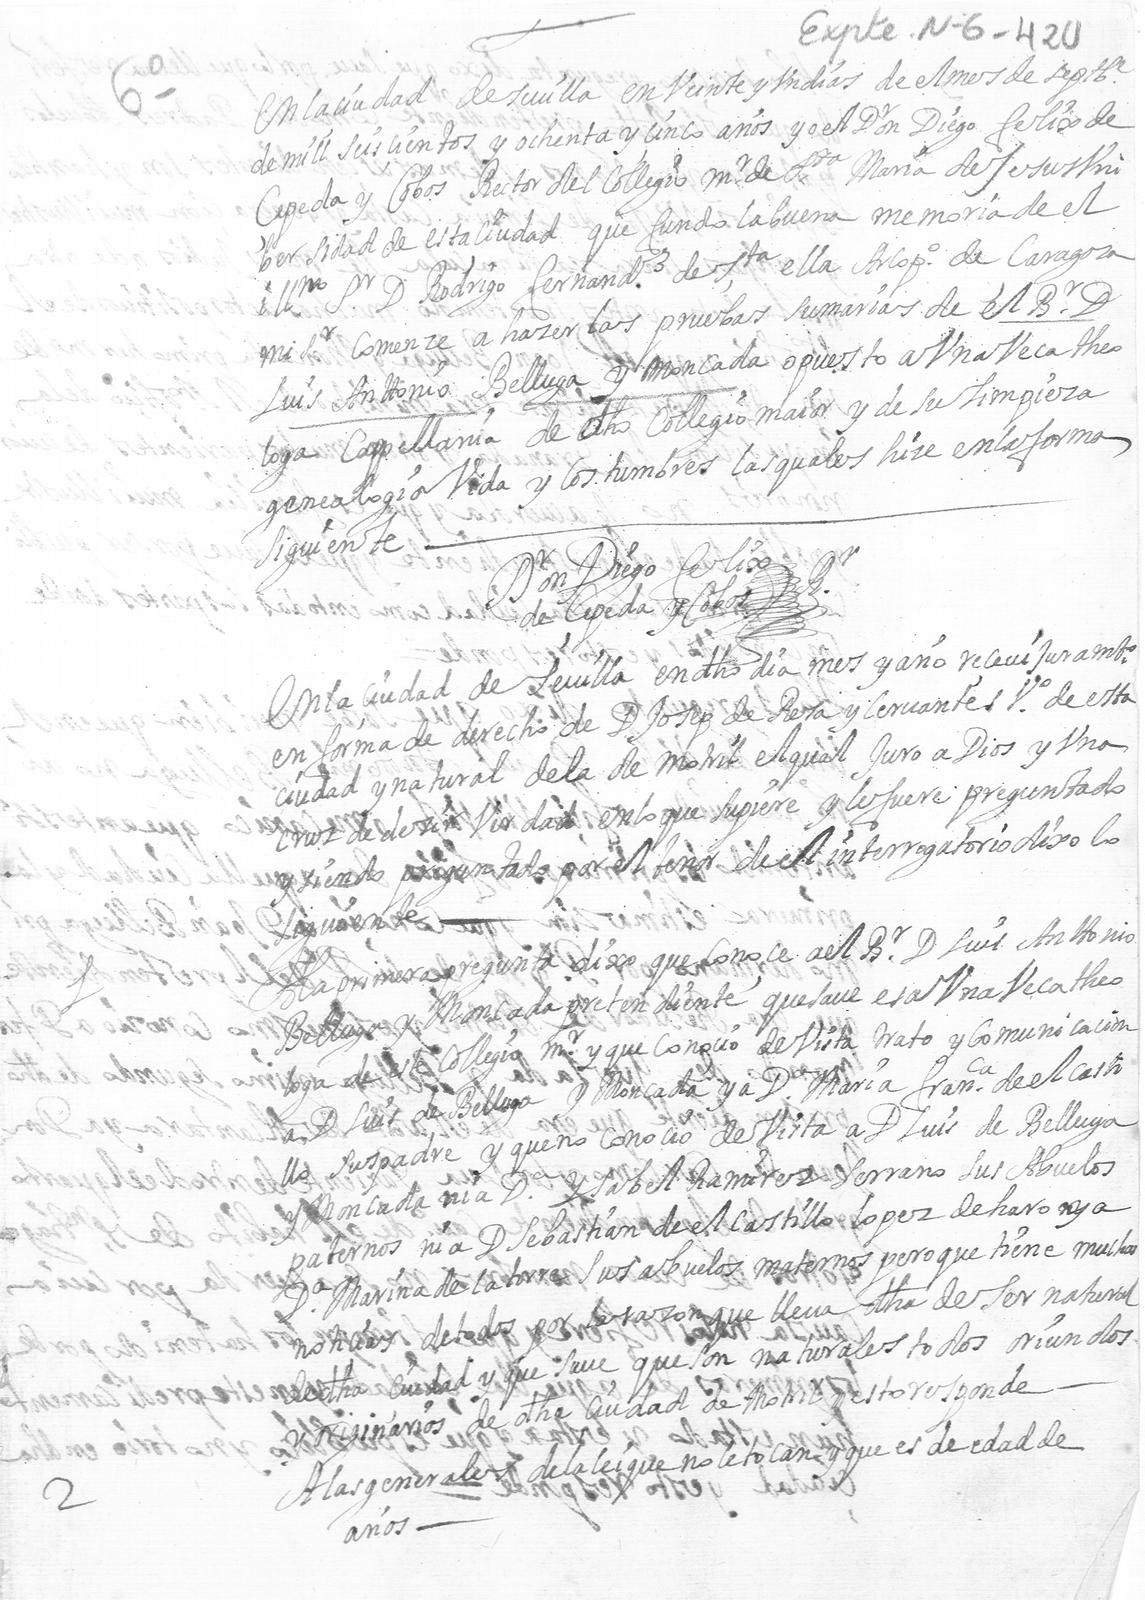 Expte. N-6-420
6º
En la ciudad de sevilla en Veinte y Un dias de el mes de septbe
de mill seiscientos y ochenta y cinco años yo el Dr Don Diego felix de
Cepeda y Cobos Rector del Collegio mr. de Sta Maria de Jesus Uni
bersidad de esta Ciudad que fundo la buena memoria de el
illmo Sr D Rodrigo fernandz de Sta ella Arsopo. de Caragoza
mi Sr comenze a hazer las pruebas sumarias de el Br. D
Luis Anttonio Belluga y Moncada opuesto a Una Veca theo
loga Cappellania de dho Collegio maior y de su limpieza
genealogia Vida y costumbres las quales hize en la forma
siguiente
Dr Don Diego felix
de Cepeda y Cobos Rr
En la ciudad de sevilla en dho dia mes y año recevi juramto.
en forma de derecho de D Josep de Pessa y Cervantes Vo. de esta
ciudad y natural de la de motril el qual juro a Dios y Una
cruz de dezir Verdad en lo que supiere y le fuere preguntado
y siendo preguntado por el tenor de el interrogatorio dixo lo
siguiente
1
A la primera pregunta dixo que conoce a el Br. D Luis Anttonio
Belluga y Moncada pretendiente que save es a Una Veca theo
loga de este Collegio mr. y que conocio de Vista trato y comunicacion
a D Luis de Belluga y Moncada y a Da. Maria franca. de el casti
llo sus padre y que no conocio de Vista a D Luis de Belluga
y Moncada ni a Da. Ysabel Ramirez Serrano sus Abuelos
paternos ni a D Sebastian de el Castillo lopez de haro ny a
Da. Marina de la torre sus abuelos maternos pero que tiene muchas
noticias de todos por la razon que lleva dha de ser natural
de dha ciudad y que save que son naturales todos oriundos
y orijinarios de dha Ciudad de Motril y esto responde
2
A las generales de la lei que no le tocan y que es de edad de
años